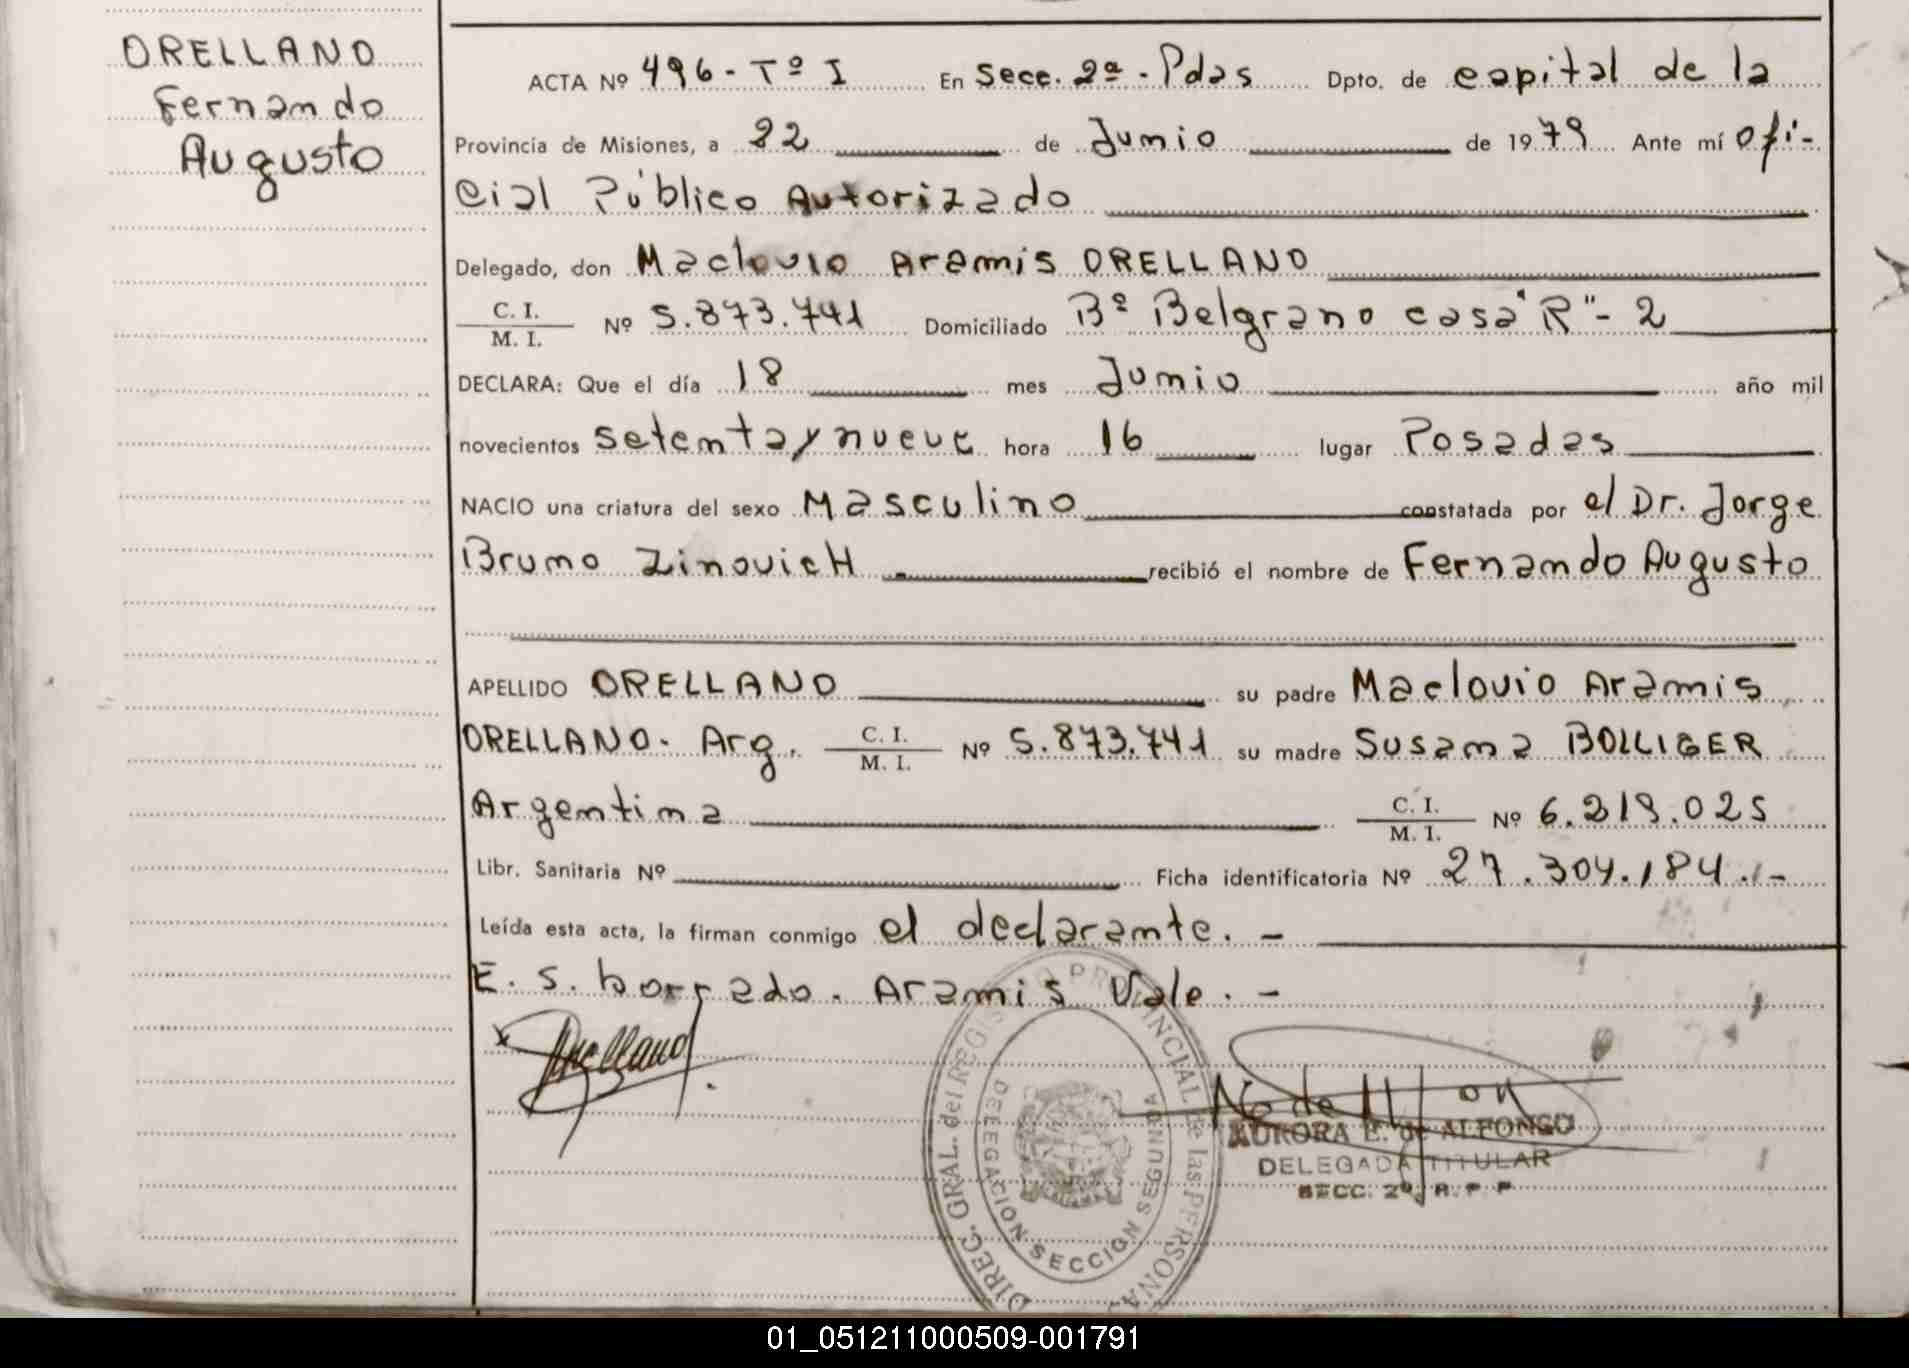 ORELLANO
Fernando
Augusto
ACTA Nº 496 - Tº I En Secc. 2ª - Pdas Dpto. de capital de la
Provincia de Misiones, a 22 de Junio de 1979 Ante mí ofi-
cial Público Autorizado
Delegado, don Maclovio Aramis ORELLANO
C. I.
M. I.
Nº 5.873.741 Domiciliado Bº Belgrano casa "R" - 2
DECLARA: Que el día 18 mes Junio año mil
novecientos setenta y nueve hora 16 lugar Posadas
NACIO una criatura del sexo Masculino constatada por el Dr. Jorge
Bruno Zinovich recibió el nombre de Fernando Augusto
APELLIDO ORELLANO su padre Maclovio Aramis
ORELLANO. Arg. C. I. M. I. Nº 5.873.741 su madre Susana BOLLIGER
Argentina C. I. M. I. Nº 6.219.025
Libr. Sanitaria Nº Ficha identificatoria Nº 27.304.184.-
Leída esta acta, la firman conmigo el declarante. -
E. S. borrado. Aramis Vale. -
Orellano
DIREC. GRAL. del REGISTRO PROVINCIAL de las PERSONAS
DELEGACION SECCION SEGUNDA
AURORA E. de ALFONSO
DELEGADA TITULAR
SECC. 2ª R. P. P.
01_051211000509-001791